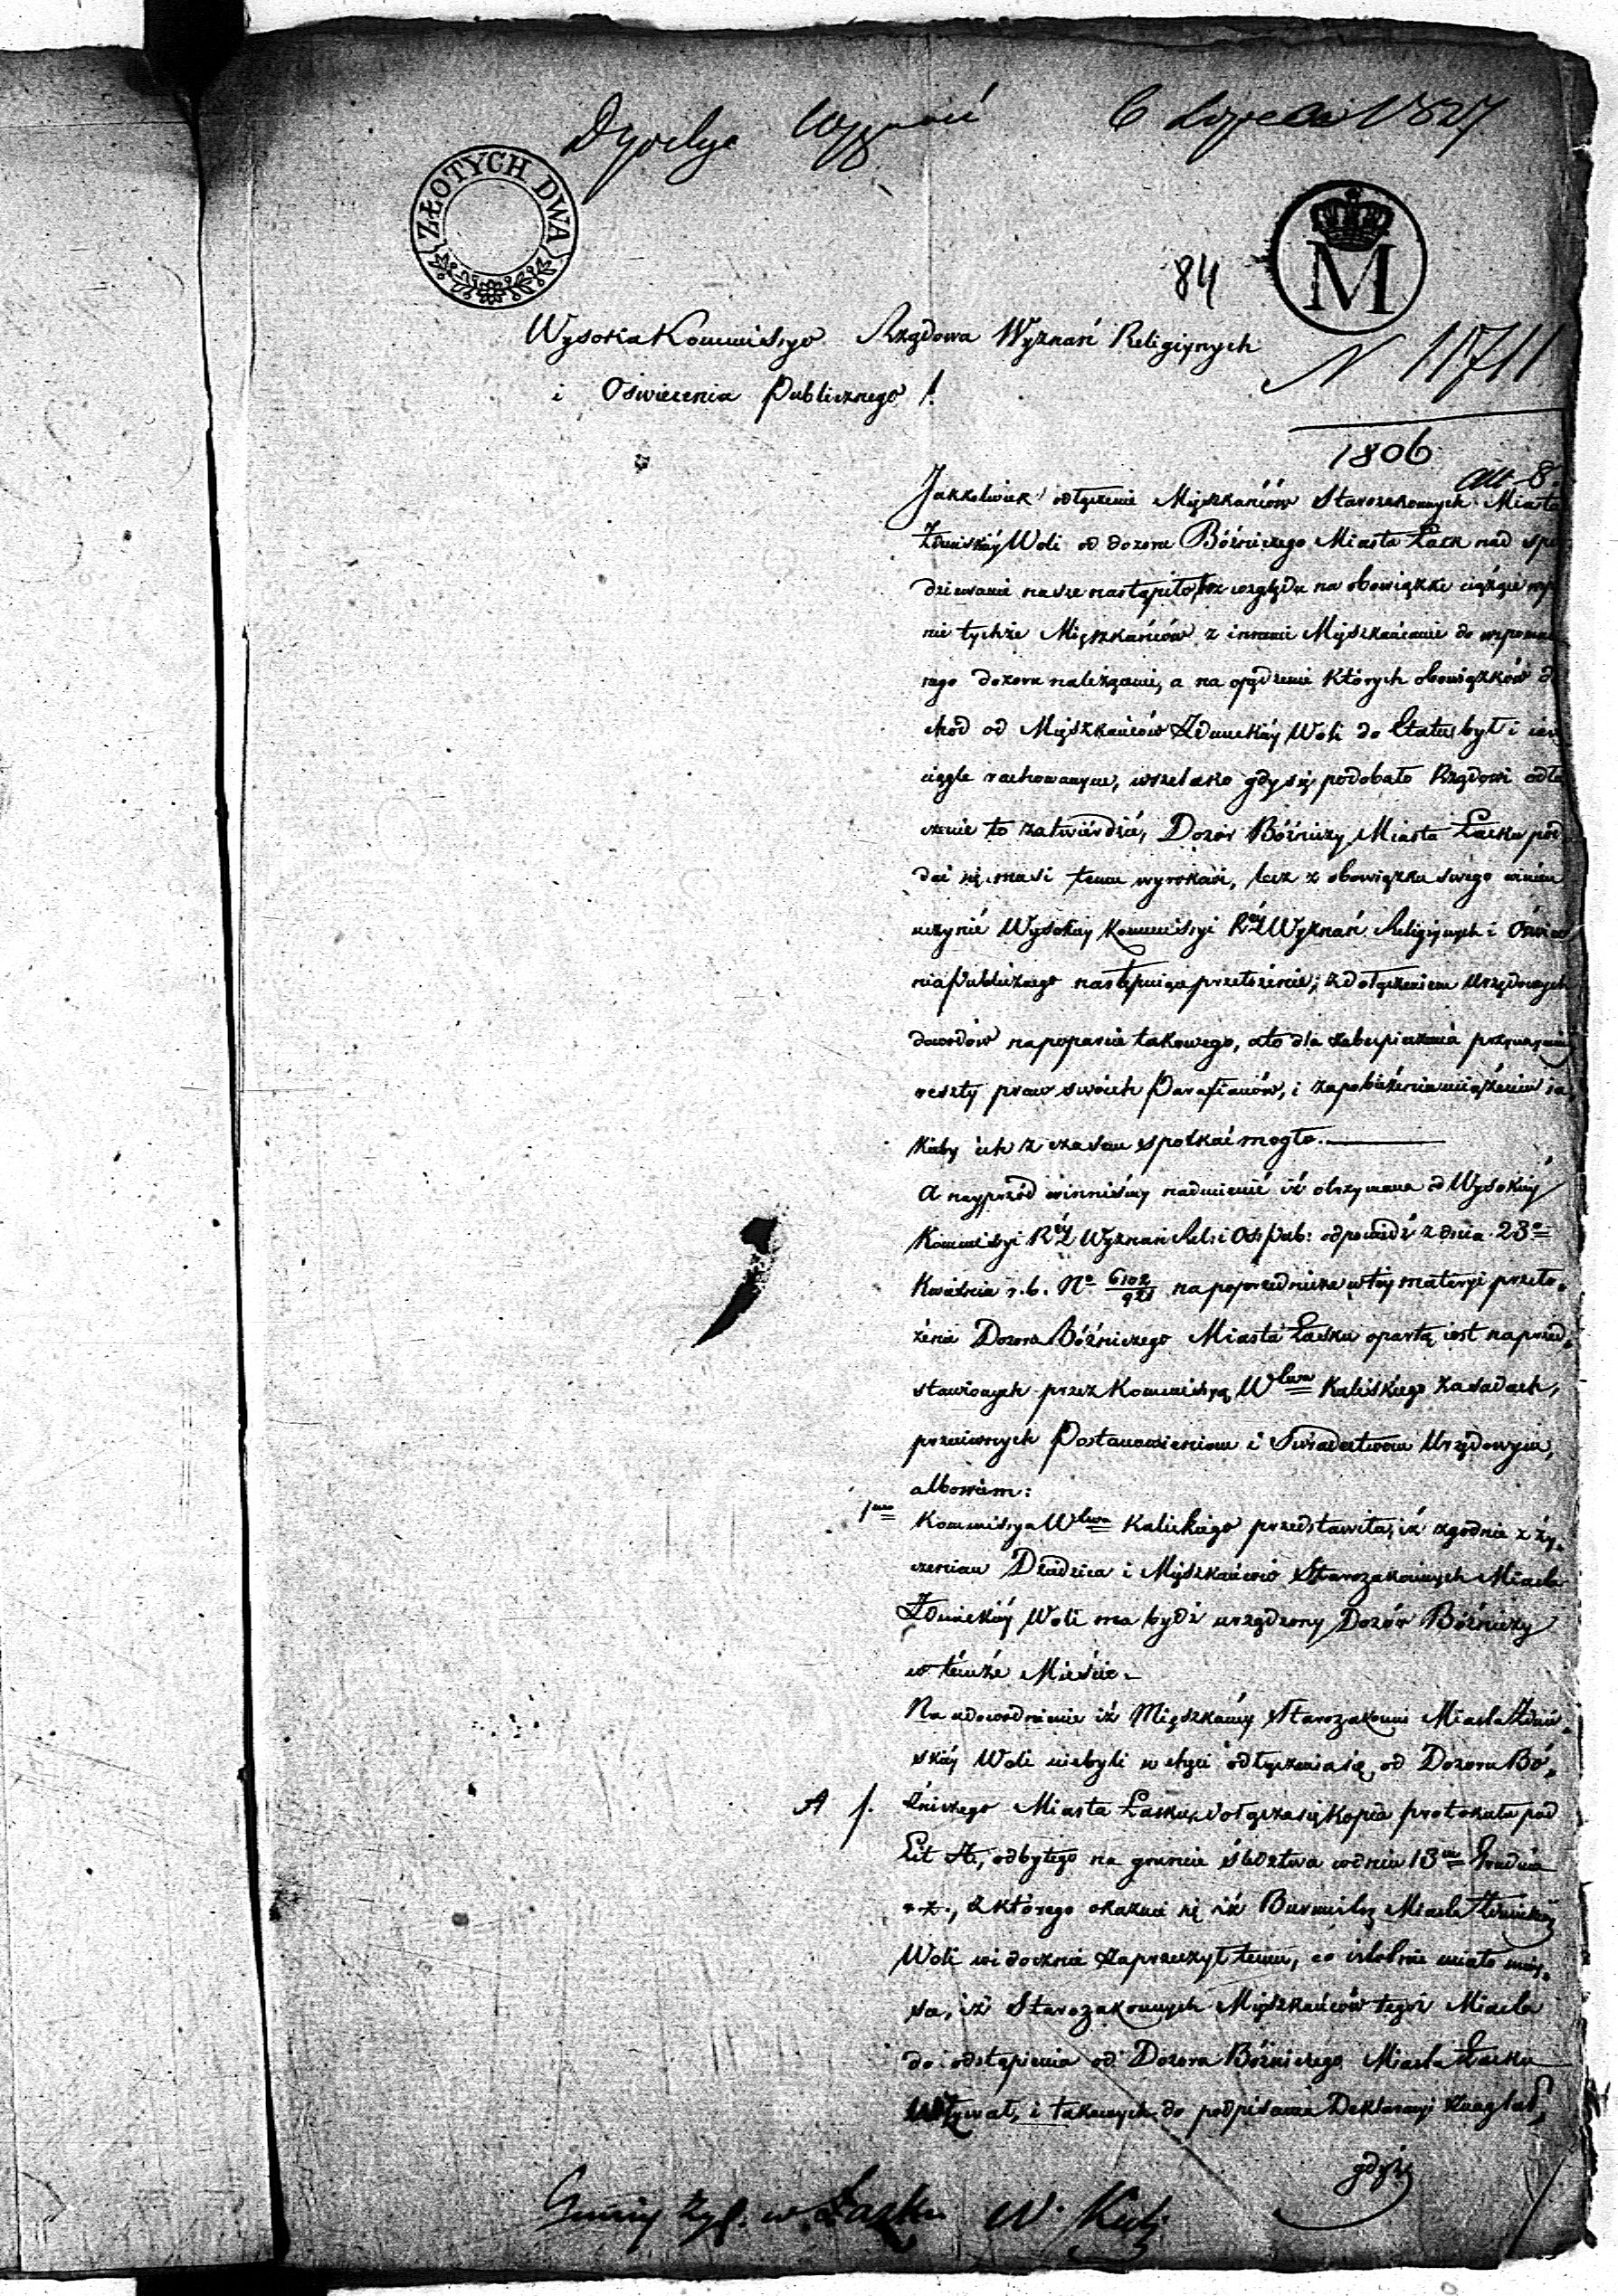 6 Lipca 1827
ZŁOTYCH DWA
M
84
Wysoka Kommissyo Rządowa Wyznań Religiynych
N 11711
i Oświecenia Publicznego!
1806
Jakkolwiek odłączenie Mieszkańców Starozakonnych Miasta
Zduńskiéy Woli od dozoru Bóżniczego Miasta Łask nad spo
dziewanie nasze nastąpiło, bez względu na obowiązki ciążące
nie tychże Mieszkańców z innemi Mieszkańcami do wspomnio
nego dozoru należącemi, a na opędzenie których obowiązków do
chod od Mieszkańców Zduńskiéy Woli do Etatu był i iest
ciągle rachowanym, wszelako gdy się podobało Rządowi odłą
czenie to zatwierdzić, Dozór Bóżniczy Miasta Łasku pod
dać się musi temu wyrokowi, lecz z obowiązku swego winien
uczynić Wysokiéy Kommissyi R Wyznań Religiynych i Oświece
nia Publicznego następuiące przełożenie, z dołączeniem Urzędowych
dowodów na poparcie takowego, a to dla zabezpieczenia przynaymniéy
reszty praw swoich Parafianów, i zapobieżenia uciążeniu ia,
kieby ich z czasem spotkać mogło.
A nayprzód winniśmy nadmienić iż otrzymana od Wysokiéy
Kommissyi R Wyznań Rel: i Oś: Pub: odpowiedź z dnia 23o
Kwietnia r.b. No 6102/921 na poprzednicze w téy materyi przeło,
żenie Dozoru Bóżniczego Miasta Łasku opartą iest na przed,
stawionych przez Kommissyą Wdztwa Kaliskiego zasadach,
przeciwnych Postanowieniom i Świadectwom Urzędowym,
albowiem:
1mo Kommissya Wdztwa Kaliskiego przedstawiła, iż zgodnie z ży,
czeniem Dziedzica i Mieszkańców Starozakonnych Miasta
Zduńskiéy Woli ma bydź urządzony Dozór Bóżniczy
w témże Mieście.
Na udowodnienie iż Mieszkańcy Starozakonni Miasta Zduń,
skiéy Woli niebyli w chęci odłączenia się od Dozoru Bó,
A /. żniczego Miasta Łasku, dołącza się kopia protokułu pod
Lit A, odbytego na gruncie śledztwa w dniu 13m Grudnia
r.z., z którego okazuie się iż Burmistrz Miasta Zduńskiéy
Woli widocznie zaprzeczył temu, co istotnie miało miey,
sce, iż Starozakonnych Mieszkańców tegoż Miasta
do odstąpienia od Dozoru Bóżniczego Miasta Łasku
wzywał, i takowych do podpisania Deklaracyi znaglał,
gdyż
Gminy Żyd. w Łasku W. Kal: